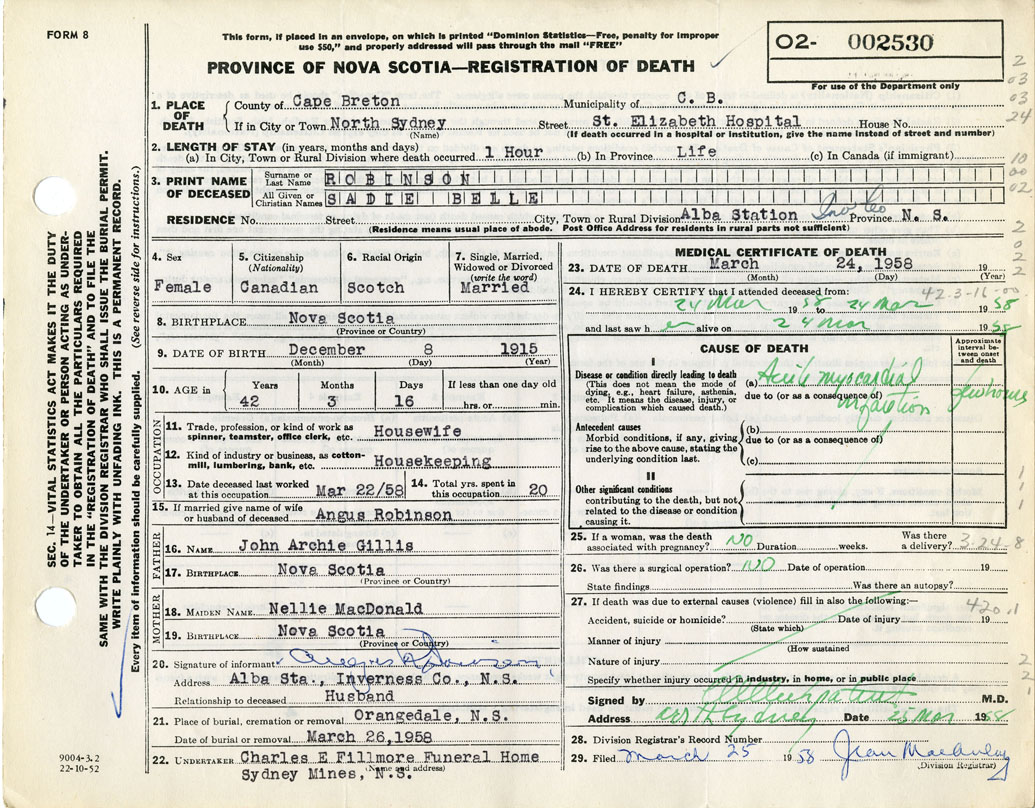 FORM 8
This form, if placed in an envelope, on which is printed "Dominion Statistics—Free, penalty for improper
use $50," and properly addressed will pass through the mail "FREE"
PROVINCE OF NOVA SCOTIA—REGISTRATION OF DEATH
02- 002530
For use of the Department only
1. PLACE OF DEATH
County of Cape Breton Municipality of C. B.
If in City or Town North Sydney Street St. Elizabeth Hospital House No.
(Name) (If death occurred in a hospital or institution, give the name instead of street and number)
2. LENGTH OF STAY (in years, months and days)
(a) In City, Town or Rural Division where death occurred 1 Hour (b) In Province Life (c) In Canada (if immigrant)
3. PRINT NAME OF DECEASED
Surname or Last Name ROBINSON
All Given or Christian Names SADIE BELLE
RESIDENCE No. Street City, Town or Rural Division Alba Station Inv Co Province N. S.
(Residence means usual place of abode. Post Office Address for residents in rural parts not sufficient)
4. Sex
Female
5. Citizenship
(Nationality)
Canadian
6. Racial Origin
Scotch
7. Single, Married,
Widowed or Divorced
(write the word)
Married
8. BIRTHPLACE Nova Scotia
(Province or Country)
9. DATE OF BIRTH December 8 1915
(Month) (Day) (Year)
10. AGE in
Years Months Days If less than one day old
42 3 16 hrs. or min.
OCCUPATION
11. Trade, profession, or kind of work as
spinner, teamster, office clerk, etc. Housewife
12. Kind of industry or business, as cotton-
mill, lumbering, bank, etc. Housekeeping
13. Date deceased last worked
at this occupation Mar 22/58
14. Total yrs. spent in
this occupation 20
15. If married give name of wife
or husband of deceased Angus Robinson
FATHER
16. NAME John Archie Gillis
17. BIRTHPLACE Nova Scotia
(Province or Country)
MOTHER
18. MAIDEN NAME Nellie MacDonald
19. BIRTHPLACE Nova Scotia
(Province or Country)
20. Signature of informant Angus Robinson
Address Alba Sta., Inverness Co., N.S.
Relationship to deceased Husband
21. Place of burial, cremation or removal Orangedale, N.S.
Date of burial or removal March 26,1958
22. UNDERTAKER Charles E Fillmore Funeral Home
(Name and address)
Sydney Mines, N.S.
MEDICAL CERTIFICATE OF DEATH
23. DATE OF DEATH March 24, 1958 19
(Month) (Day) (Year)
24. I HEREBY CERTIFY that I attended deceased from:
42-3-16-00
24 Mar 1958 to 24 Mar 1958
and last saw her alive on 24 Mar 1958
CAUSE OF DEATH
Approximate
interval be-
tween onset
and death
I
Disease or condition directly leading to death
(This does not mean the mode of
dying, e.g., heart failure, asthenia,
etc. It means the disease, injury, or
complication which caused death.)
(a) Acute myocardial
due to (or as a consequence of)
infarction
few hours
Antecedent causes
Morbid conditions, if any, giving
rise to the above cause, stating the
underlying condition last.
(b)
due to (or as a consequence of)
(c)
II
Other significant conditions
contributing to the death, but not
related to the disease or condition
causing it.
25. If a woman, was the death
associated with pregnancy? NO Duration weeks. Was there
a delivery? 3-24-8
26. Was there a surgical operation? NO Date of operation 19
State findings Was there an autopsy?
27. If death was due to external causes (violence) fill in also the following:—
420.1
Accident, suicide or homicide? Date of injury 19
(State which)
Manner of injury
(How sustained
Nature of injury
Specify whether injury occurred in industry, in home, or in public place
Signed by M.D.
Address North Sydney Date 25 Mar 1958
28. Division Registrar's Record Number
29. Filed March 25 1958 Jean
(Division Registrar)
SEC. 14—VITAL STATISTICS ACT MAKES IT THE DUTY
OF THE UNDERTAKER OR PERSON ACTING AS UNDER-
TAKER TO OBTAIN ALL THE PARTICULARS REQUIRED
IN THE "REGISTRATION OF DEATH" AND TO FILE THE
SAME WITH THE DIVISION REGISTRAR WHO SHALL ISSUE THE BURIAL PERMIT.
WRITE PLAINLY WITH UNFADING INK. THIS IS A PERMANENT RECORD.
Every item of information should be carefully supplied. (See reverse side for instructions.)
9004-3.2
22-10-52
2
03
03
24
10
00
02
2
0
2
2
1
1
1
2
2
1